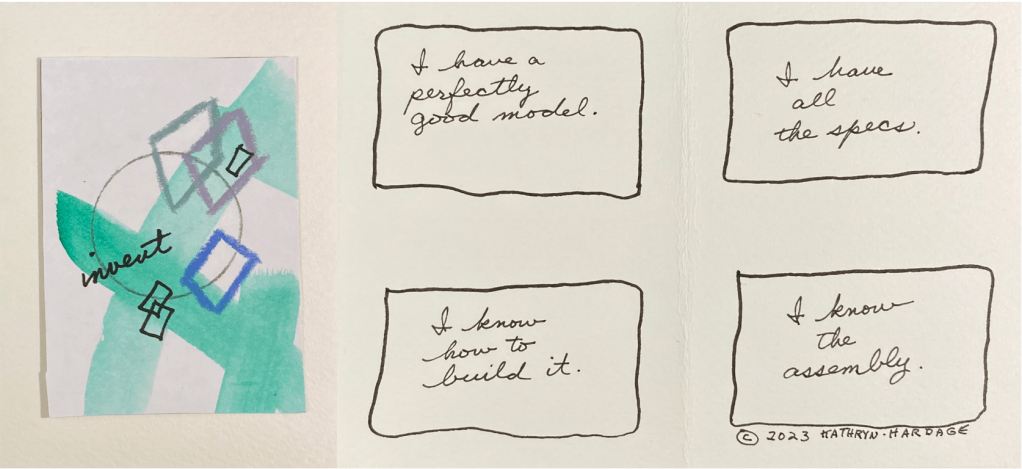 invent
I have a
perfectly
good model.
I have
all
the specs.
I know
how to
build it.
I know
the
assembly.
© 2023 KATHRYN·HARDAGE